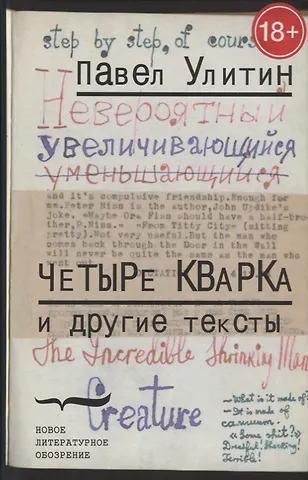 step by step, of cours
18+
Павел Улитин
Невероятный
увеличивающийся
уменьшающийся
and it's compulsive friendship.Enough for
me.Peter Niss is the author,John Updike's
joke. «Maybe Ora Fiss should have a half-bro-
ther,P.Niss.» «From Titty City» (sitting
pretty).Not very useful.But the man who
comes back through the Door in the Wall
will never be quite the same as the man who
went out
4
ЧЕТЫРЕ КВАРКА
и другие тексты
The Incredible Shrinking Man
Creature
-What is it made of?
-It is made of
«Some shit?»
Dreadful! Shocking!
Terrible!
НОВОЕ
ЛИТЕРАТУРНОЕ
ОБОЗРЕНИЕ